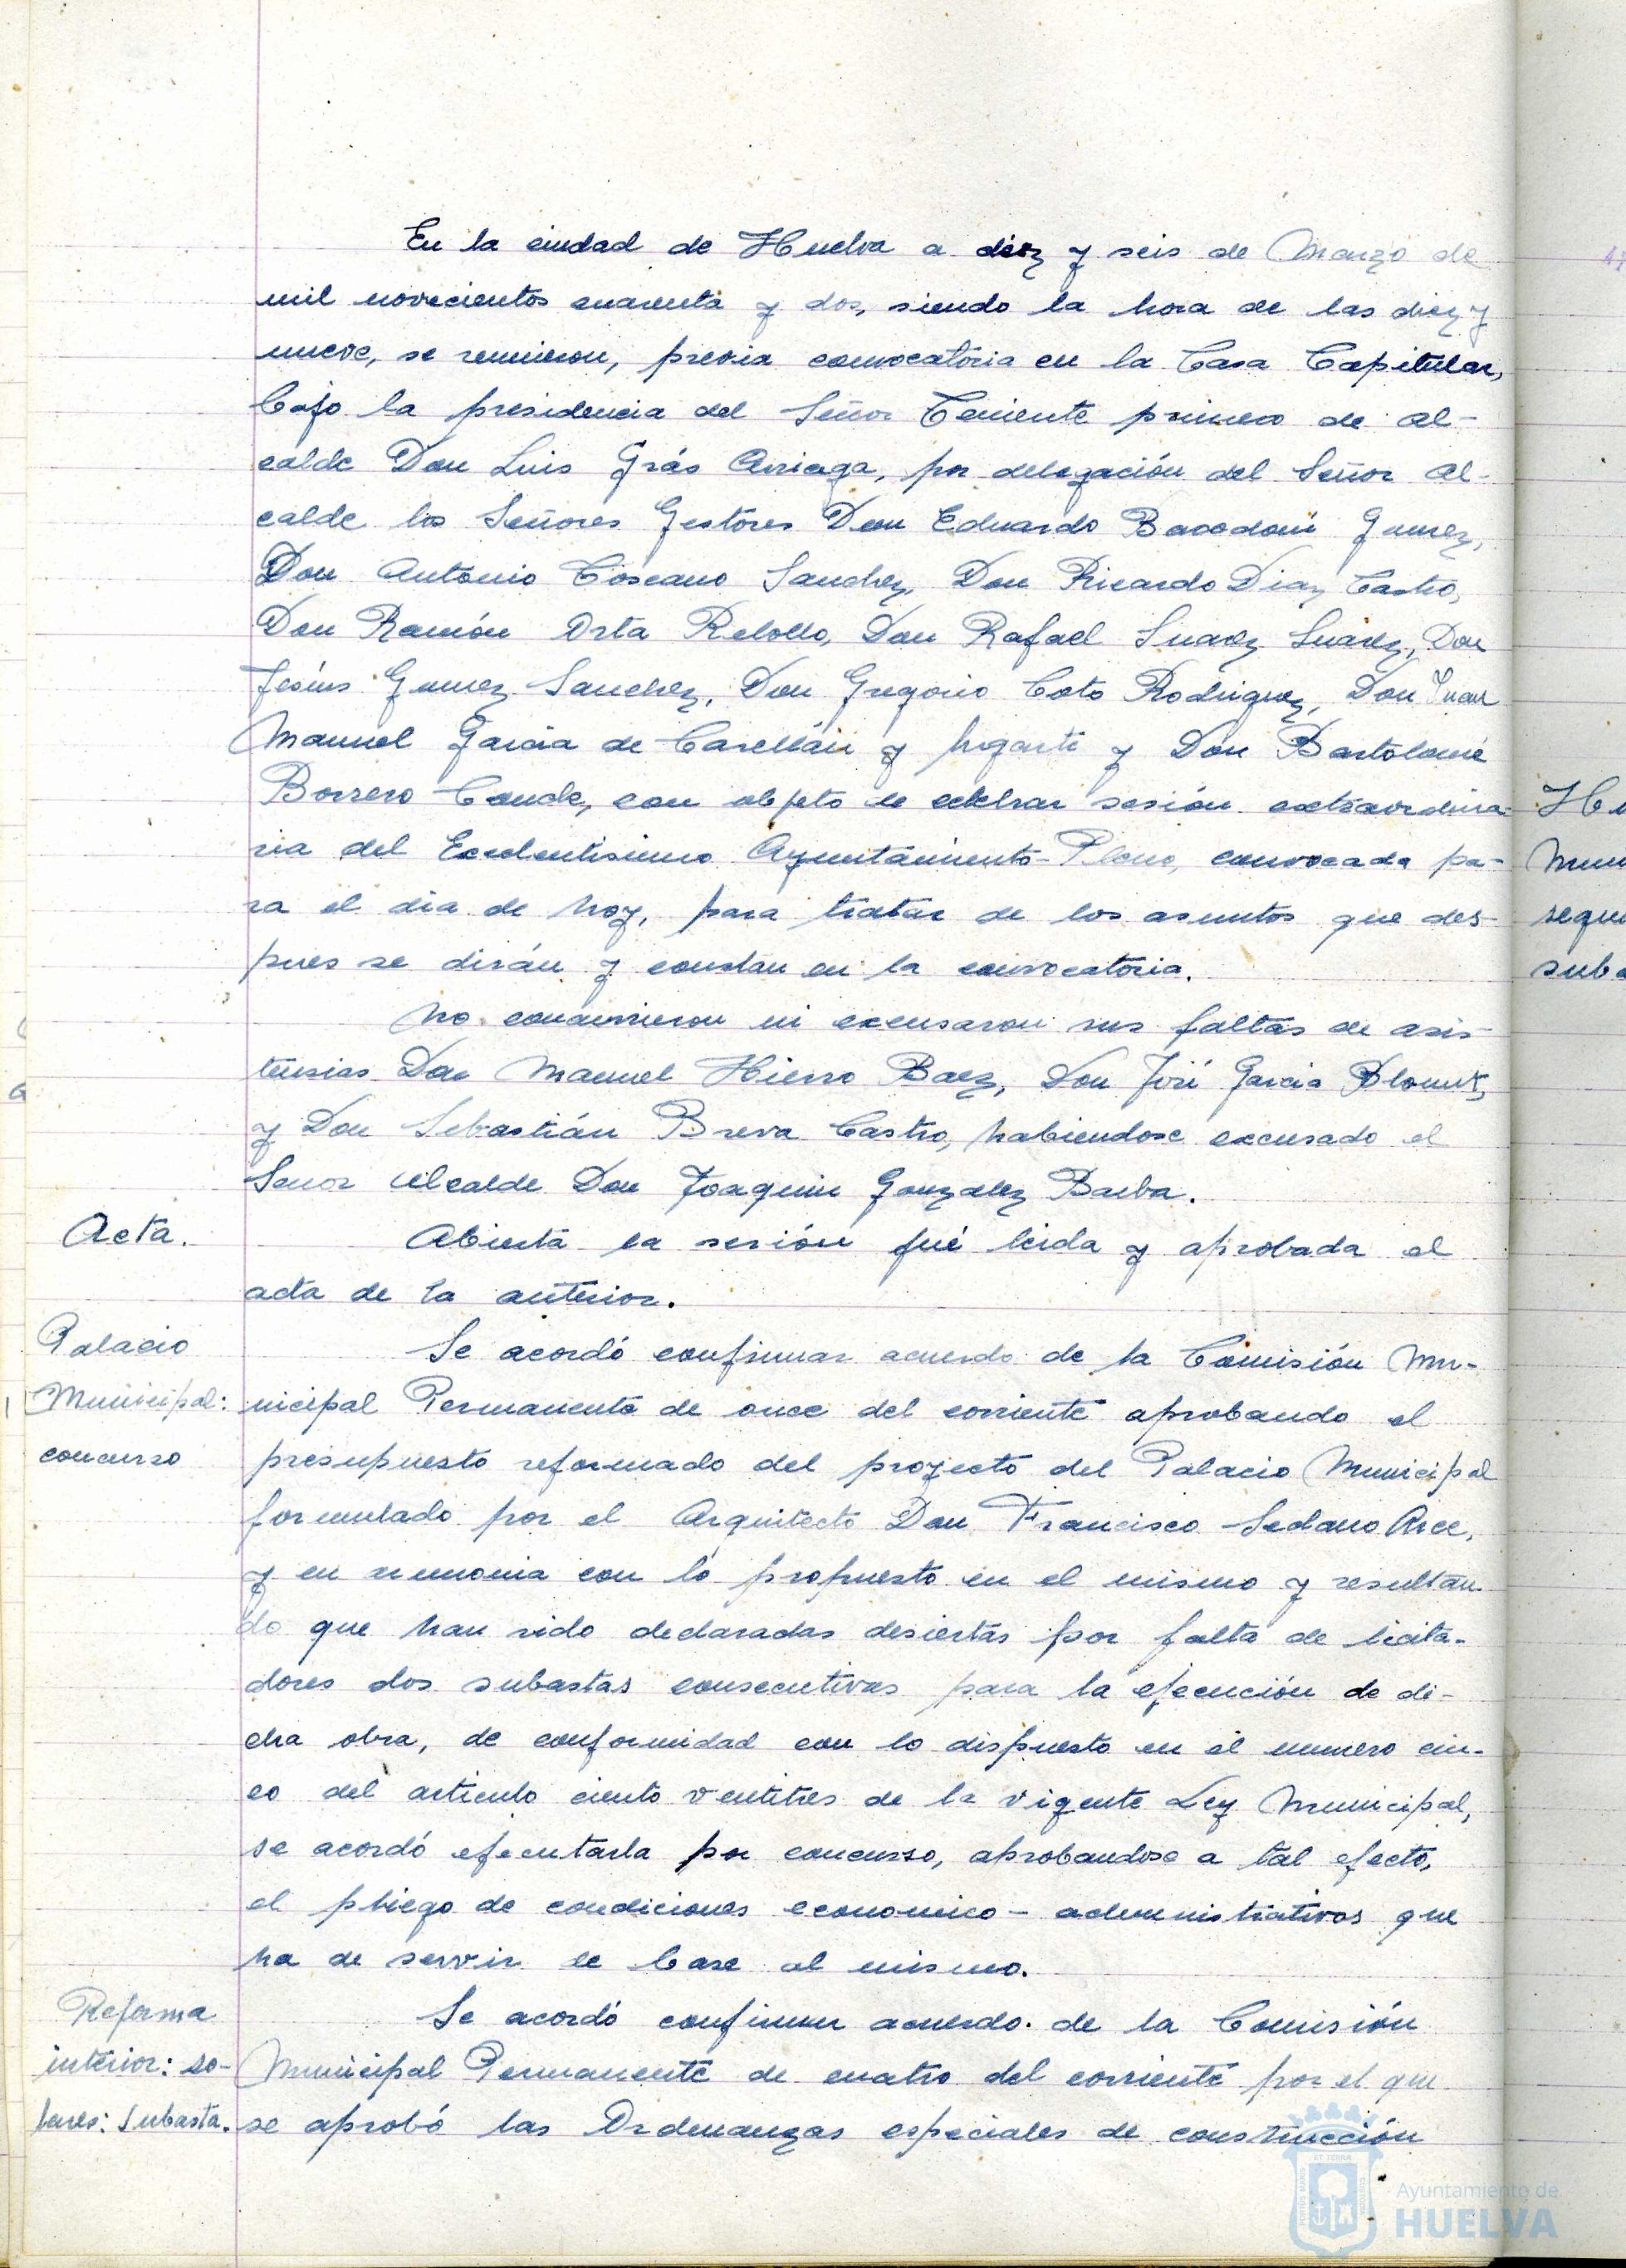 En la ciudad de Huelva a diez y seis de Marzo de
mil novecientos cuarenta y dos, siendo la hora de las diez y
nueve, se reunieron, previa convocatoria en la Casa Capitular,
bajo la presidencia del Señor Teniente primero de Al-
calde Don Luis Grás Arriaga, por delegación del Señor Al-
calde los Señores Gestores Don Eduardo Gumez,
Don Antonio Toscano Sanchez, Don Ricardo Diaz Castro,
Don Ramón Orta Rebollo, Don Rafael Suarez Suarez, Don
Jesús Gumez Sanchez, Don Gregorio Coto Rodriguez, Don Juan
Manuel Garcia de y Don Bartolomé
Borrero Conde, con objeto de celebrar sesión extraordina-
ria del Excelentisimo Ayuntamiento-Pleno, convocada pa-
ra el dia de hoy, para tratar de los asuntos que des-
pues se dirán y constan en la convocatoria.
No concurrieron ni excusaron sus faltas de asis-
tensias Don Manuel Hierro Baez, Don José Garcia
y Don Sebastián Breva Castro, habiendose excusado el
Senor Alcalde Don Joaquin Gonzalez Barba.
Acta.
Abierta la sesión fué leida y aprobada el
acta de la anterior.
Palacio
Municipal:
concurso
Se acordó confirmar acuerdo de la Comisión Mu-
nicipal Permanente de once del corriente aprobando el
presupuesto reformado del proyecto del Palacio Municipal
formulado por el Arquitecto Don Francisco Sedano Arce,
y en con lo propuesto en el mismo y resultan
do que han sido declaradas desiertas por falta de licita-
dores dos subastas consecutivas para la ejecución de di-
cha obra, de conformidad con lo dispuesto en el numero cin-
co del articulo ciento ventitres de la vigente Ley Municipal,
se acordó ejecutarla por concurso, aprobandose a tal efecto,
el pliego de condiciones economico-administrativas que
ha de servir de base al mismo.
Reforma
interior: so-
lares: Subasta.
Se acordó confirmar acuerdo. de la Comisión
Municipal Permanente de cuatro del corriente por el que
se aprobó las Ordenanzas especiales de construcción
Ayuntamiento de
HUELVA